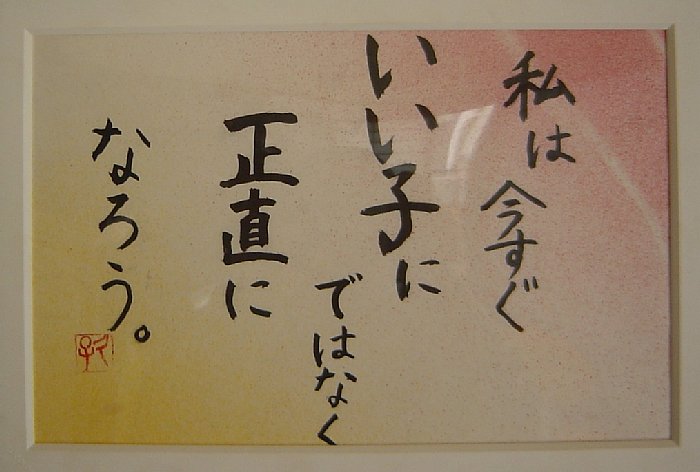 私は
今すぐ
いい子に
ではなく
正直に
なろう。